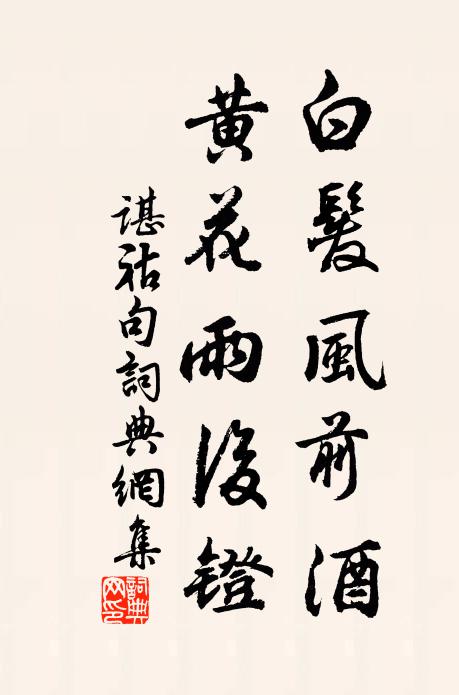 白髮風前酒
黃花雨後鐙
諶祜句詞典網集
詞典網印